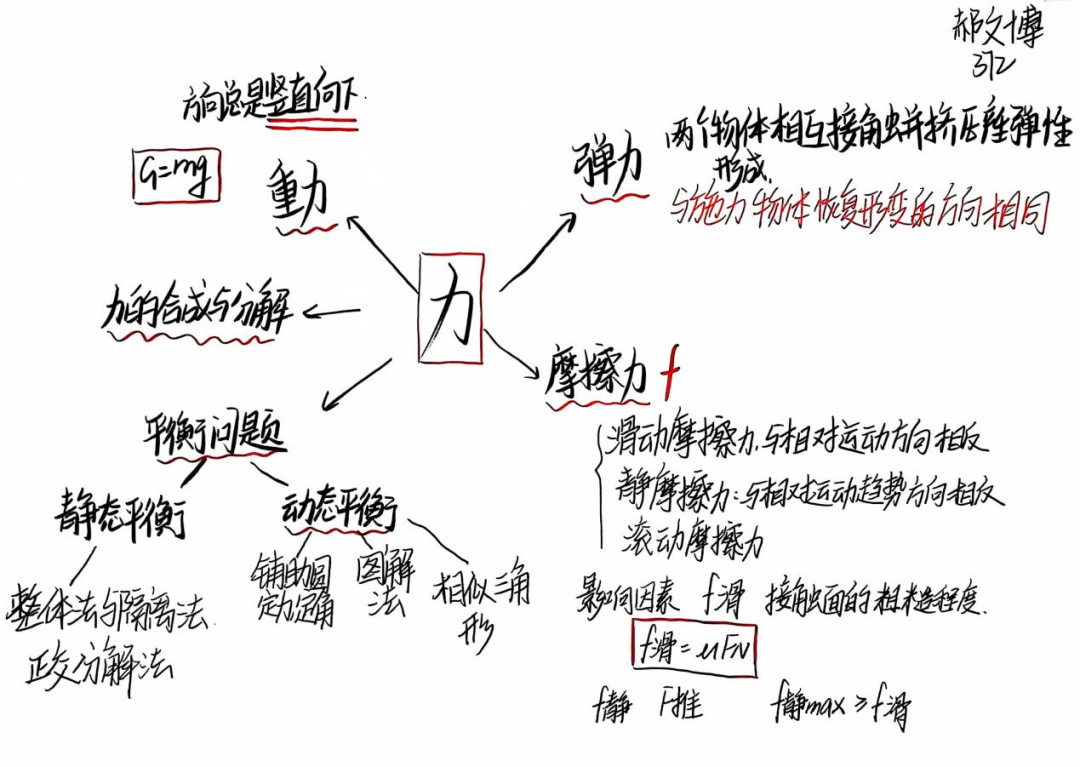 郝文博
372
方向总是竖直向下.
G=mg
重力
弹力
两个物体相互接触并挤压产弹性
形成.
与施力物体恢复形变的方向相同
力
力的合成与分解
摩擦力 f
滑动摩擦力.与相对运动方向相反
静摩擦力:与相对运动趋势方向相反
滚动摩擦力
影响因素 f滑 接触面的粗糙程度.
f滑=μFN
f静 F推 f静max≥f滑
平衡问题
静态平衡
整体法与隔离法.
正交分解法
动态平衡
辅助圆
定力定角
图解
法
相似三角
形